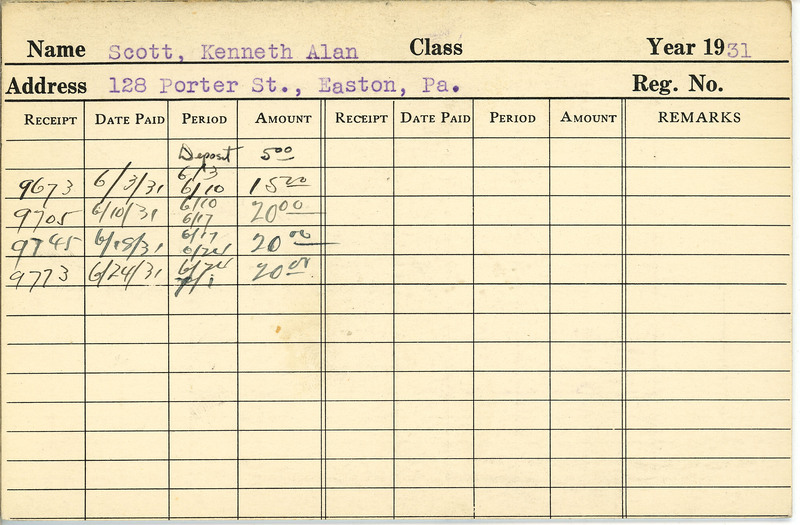 Name Scott, Kenneth Alan Class Year 1931
Address 128 Porter St., Easton, Pa. Reg. No.
RECEIPT DATE PAID PERIOD AMOUNT RECEIPT DATE PAID PERIOD AMOUNT REMARKS
Deposit 5 00
6/3
9673 6/3/31 6/10 15 00
6/10
9705 6/10/31 6/17 20 00
6/17
9745 6/18/31 6/24 20 00
6/24
9773 6/24/31 7/1 20 00